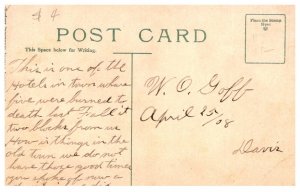 4 4
POST CARD
This Space below for Writing.
Place the Stamp
Here
This is one of the
Hotels in town where
five were burned to
death last Fall it
two blocks from us
How is things in the
old town we do not
have those good times
you spoke of now a
W. O. Goff
April 25/08
Davis